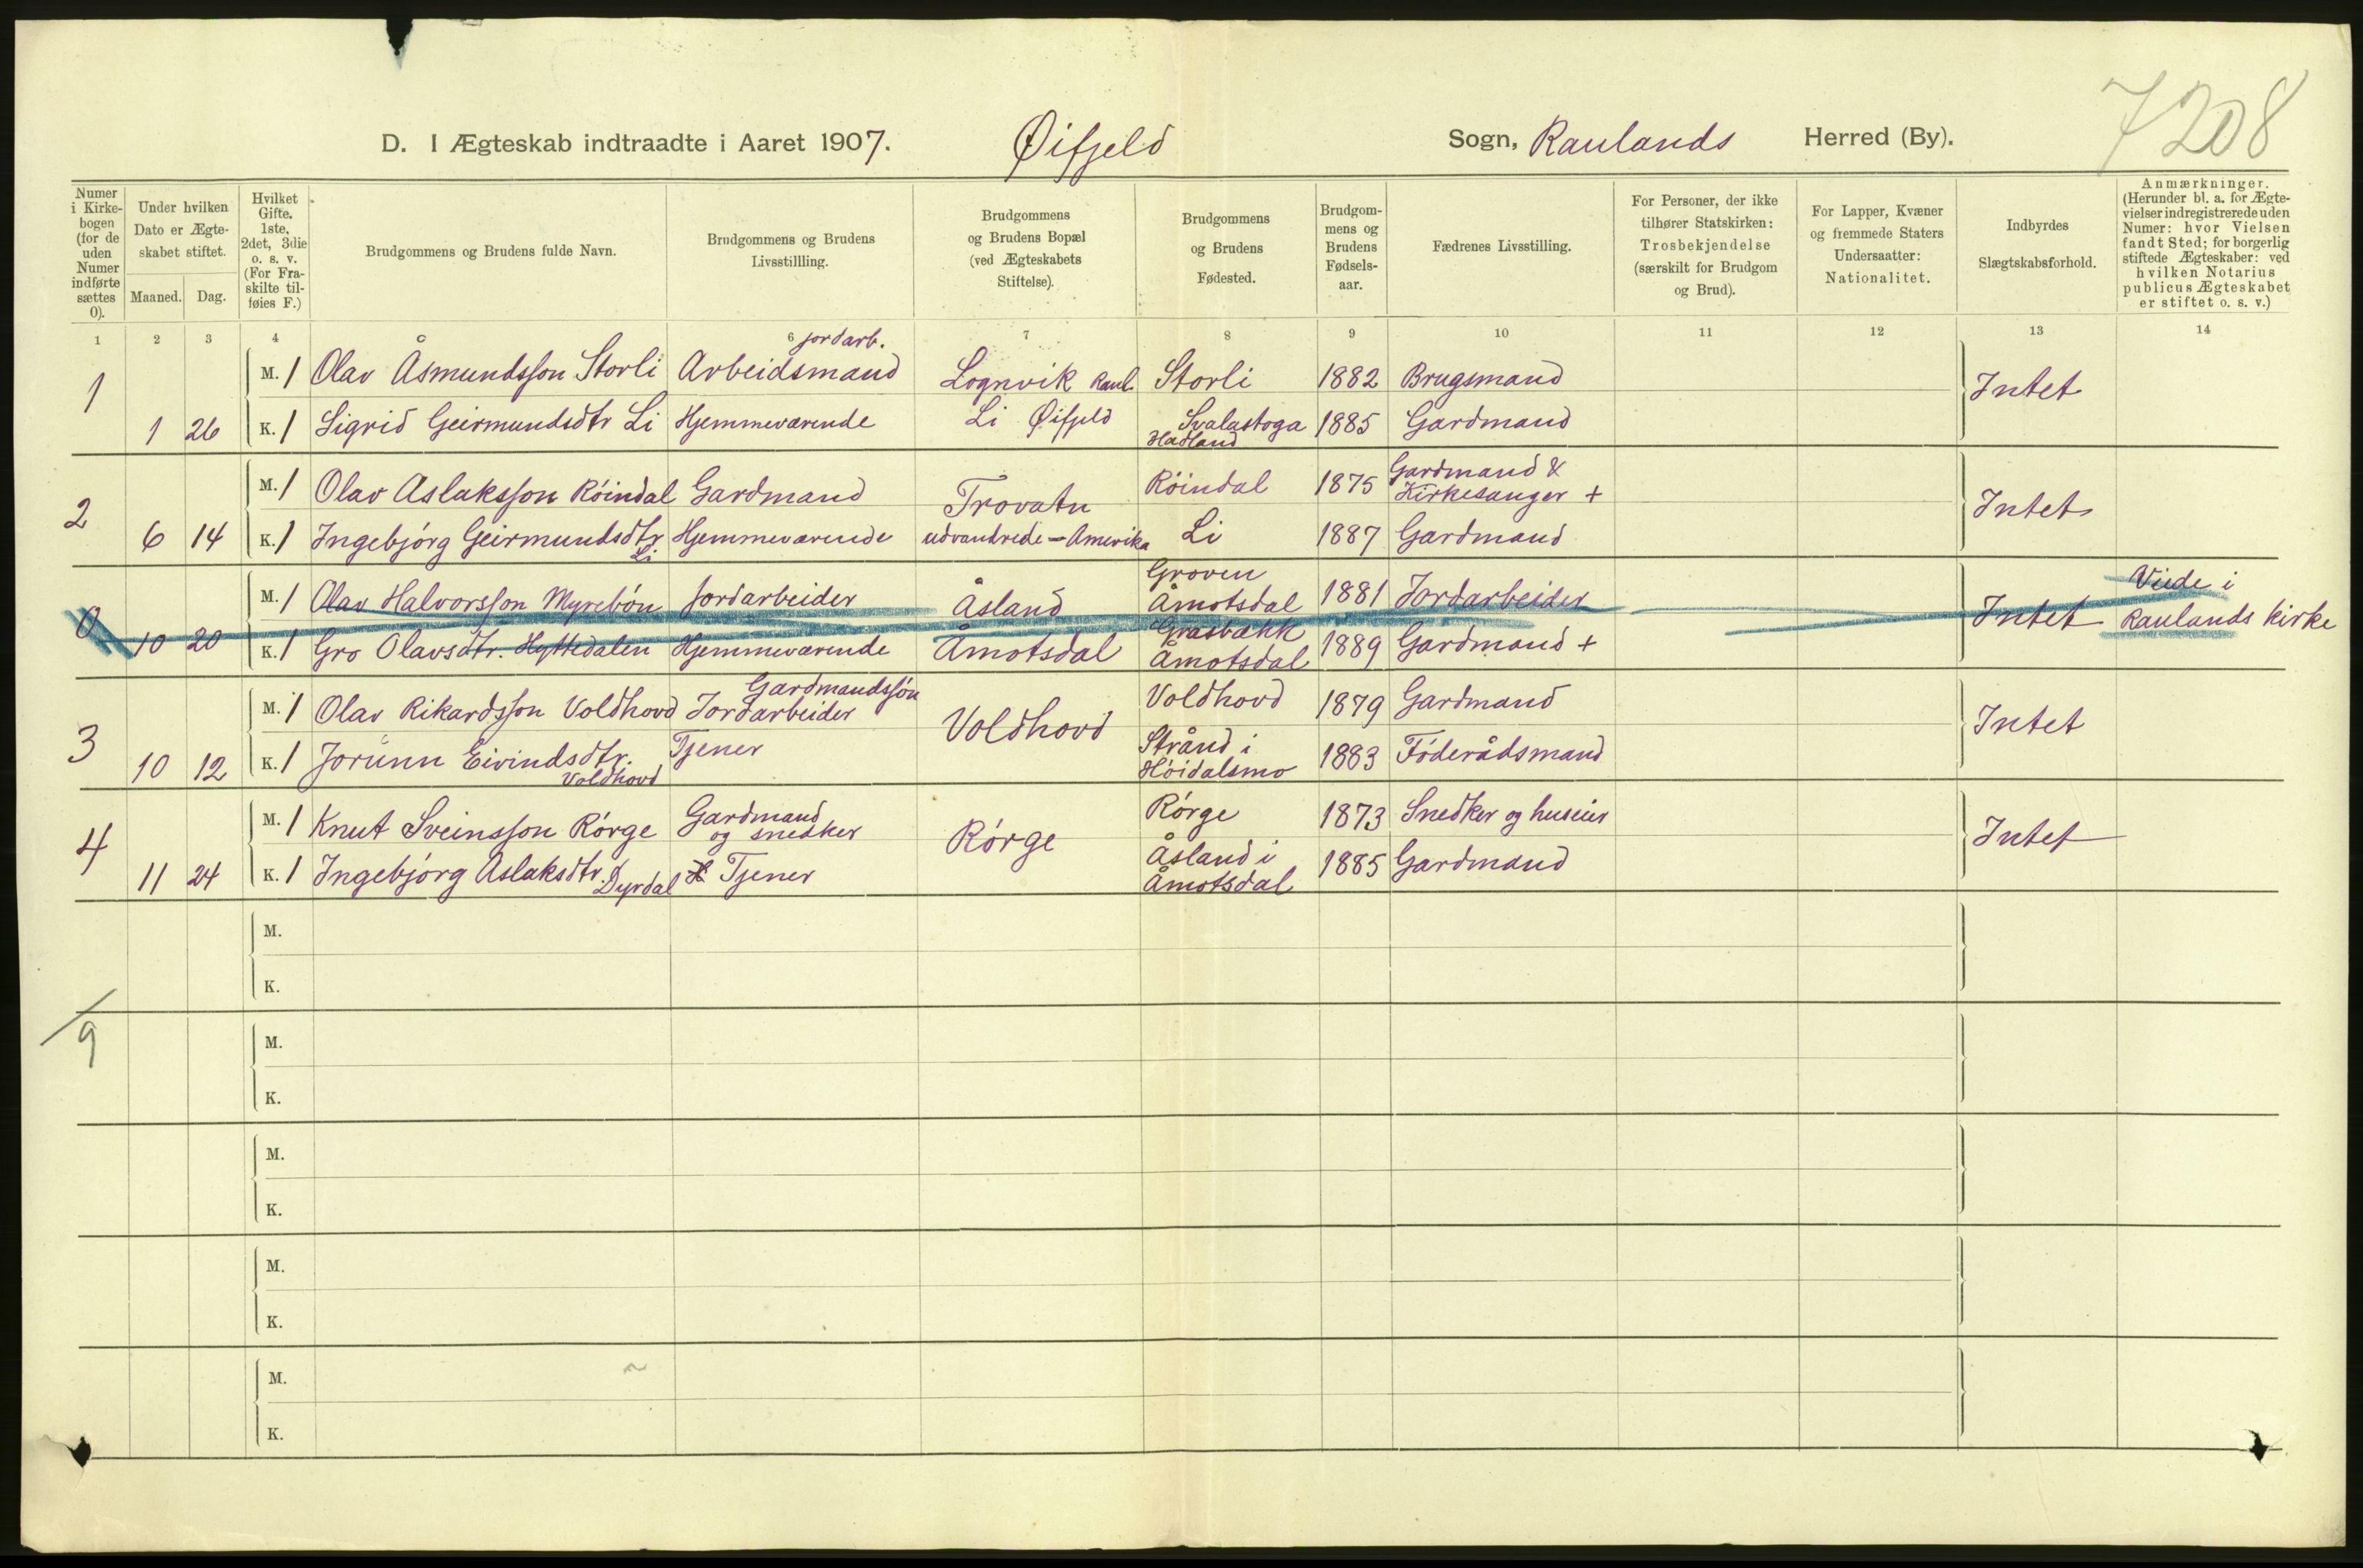 7208
D. I Ægteskab indtraadte i Aaret 1907. Øifjeld Sogn, Raulands Herred (By).
Numer i Kirkebogen (for de uden Numer indførte sættes 0).
Under hvilken Dato er Ægteskabet stiftet.
Maaned. Dag.
Hvilket Gifte. 1ste, 2det, 3die o. s. v. (For Fraskilte tilføies F.)
Brudgommens og Brudens fulde Navn.
Brudgommens og Brudens Livsstillling.
Brudgommens og Brudens Bopæl (ved Ægteskabets Stiftelse).
Brudgommens og Brudens Fødested.
Brudgommens og Brudens Fødselsaar.
Fædrenes Livsstilling.
For Personer, der ikke tilhører Statskirken: Trosbekjendelse (særskilt for Brudgom og Brud).
For Lapper, Kvæner og fremmede Staters Undersaatter: Nationalitet.
Indbyrdes Slægtskabsforhold.
Anmærkninger. (Herunder bl. a. for Ægtevielser indregistrerede uden Numer: hvor Vielsen fandt Sted; for borgerlig stiftede Ægteskaber: ved hvilken Notarius publicus Ægteskabet er stiftet o. s. v.)
1 2 3 4 6 7 8 9 10 11 12 13 14
jordarb.
1 M. 1 Olav Åsmundsson Storli Arbeidsmand Lognvik Raul. Storli 1882 Brugsmand Intet
1 26 K. 1 Sigrid Geirmundsdtr Li Hjemmeværende Li Øifjeld Svalastoga 1885 Gardmand
Hadland
2 M. 1 Olav Aslaksson Röindal Gardmand Trovatn Röindal 1875 Gardmand & Kirkesanger + Intet
6 14 K. 1 Ingebjörg Geirmundsdtr Li Hjemmeværende udvandrede - Amerika Li 1887 Gardmand
0 M. 1 Olav Halvorsson Myrebön Jordarbeider Åsland Groven Åmotsdal 1881 Jordarbeider Intet Viede i Raulands kirke
10 20 K. 1 Gro Olavsdtr. Hyttedalen Hjemmeværende Åmotsdal Grasbækk Åmotsdal 1889 Gardmand +
3 M. 1 Olav Rikardsson Voldhovd Gardmandssön Jordarbeider Voldhovd Voldhovd 1879 Gardmand Intet
10 12 K. 1 Jorunn Eivindsdtr. Voldhovd Tjener Strånd i Höidalsmo 1883 Föderådsmand
4 M. 1 Knut Sveinsson Rörge Gardmand og snedker Rörge Rörge 1873 Snedker og huseier Intet
11 24 K. 1 Ingebjörg Aslaksdtr. Dyrdal Tjener Åsland i Åmotsdal 1885 Gardmand
M.
K.
9
M.
K.
M.
K.
M.
K.
M.
K.